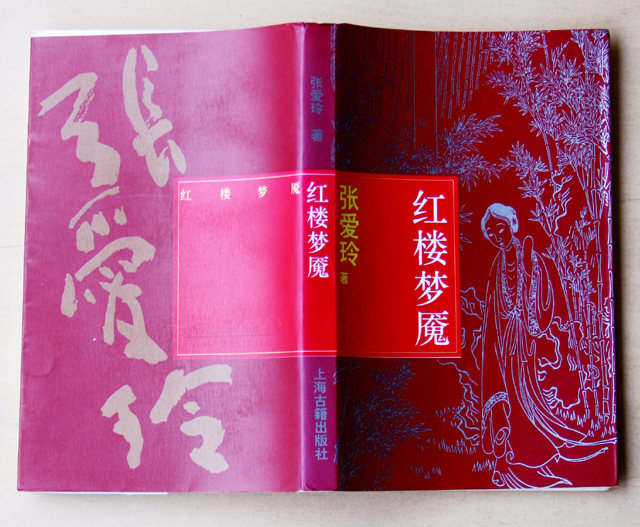 張愛玲
红楼梦魇
张爱玲 著
红楼梦魇
上海古籍出版社
张爱玲 著
红楼梦魇